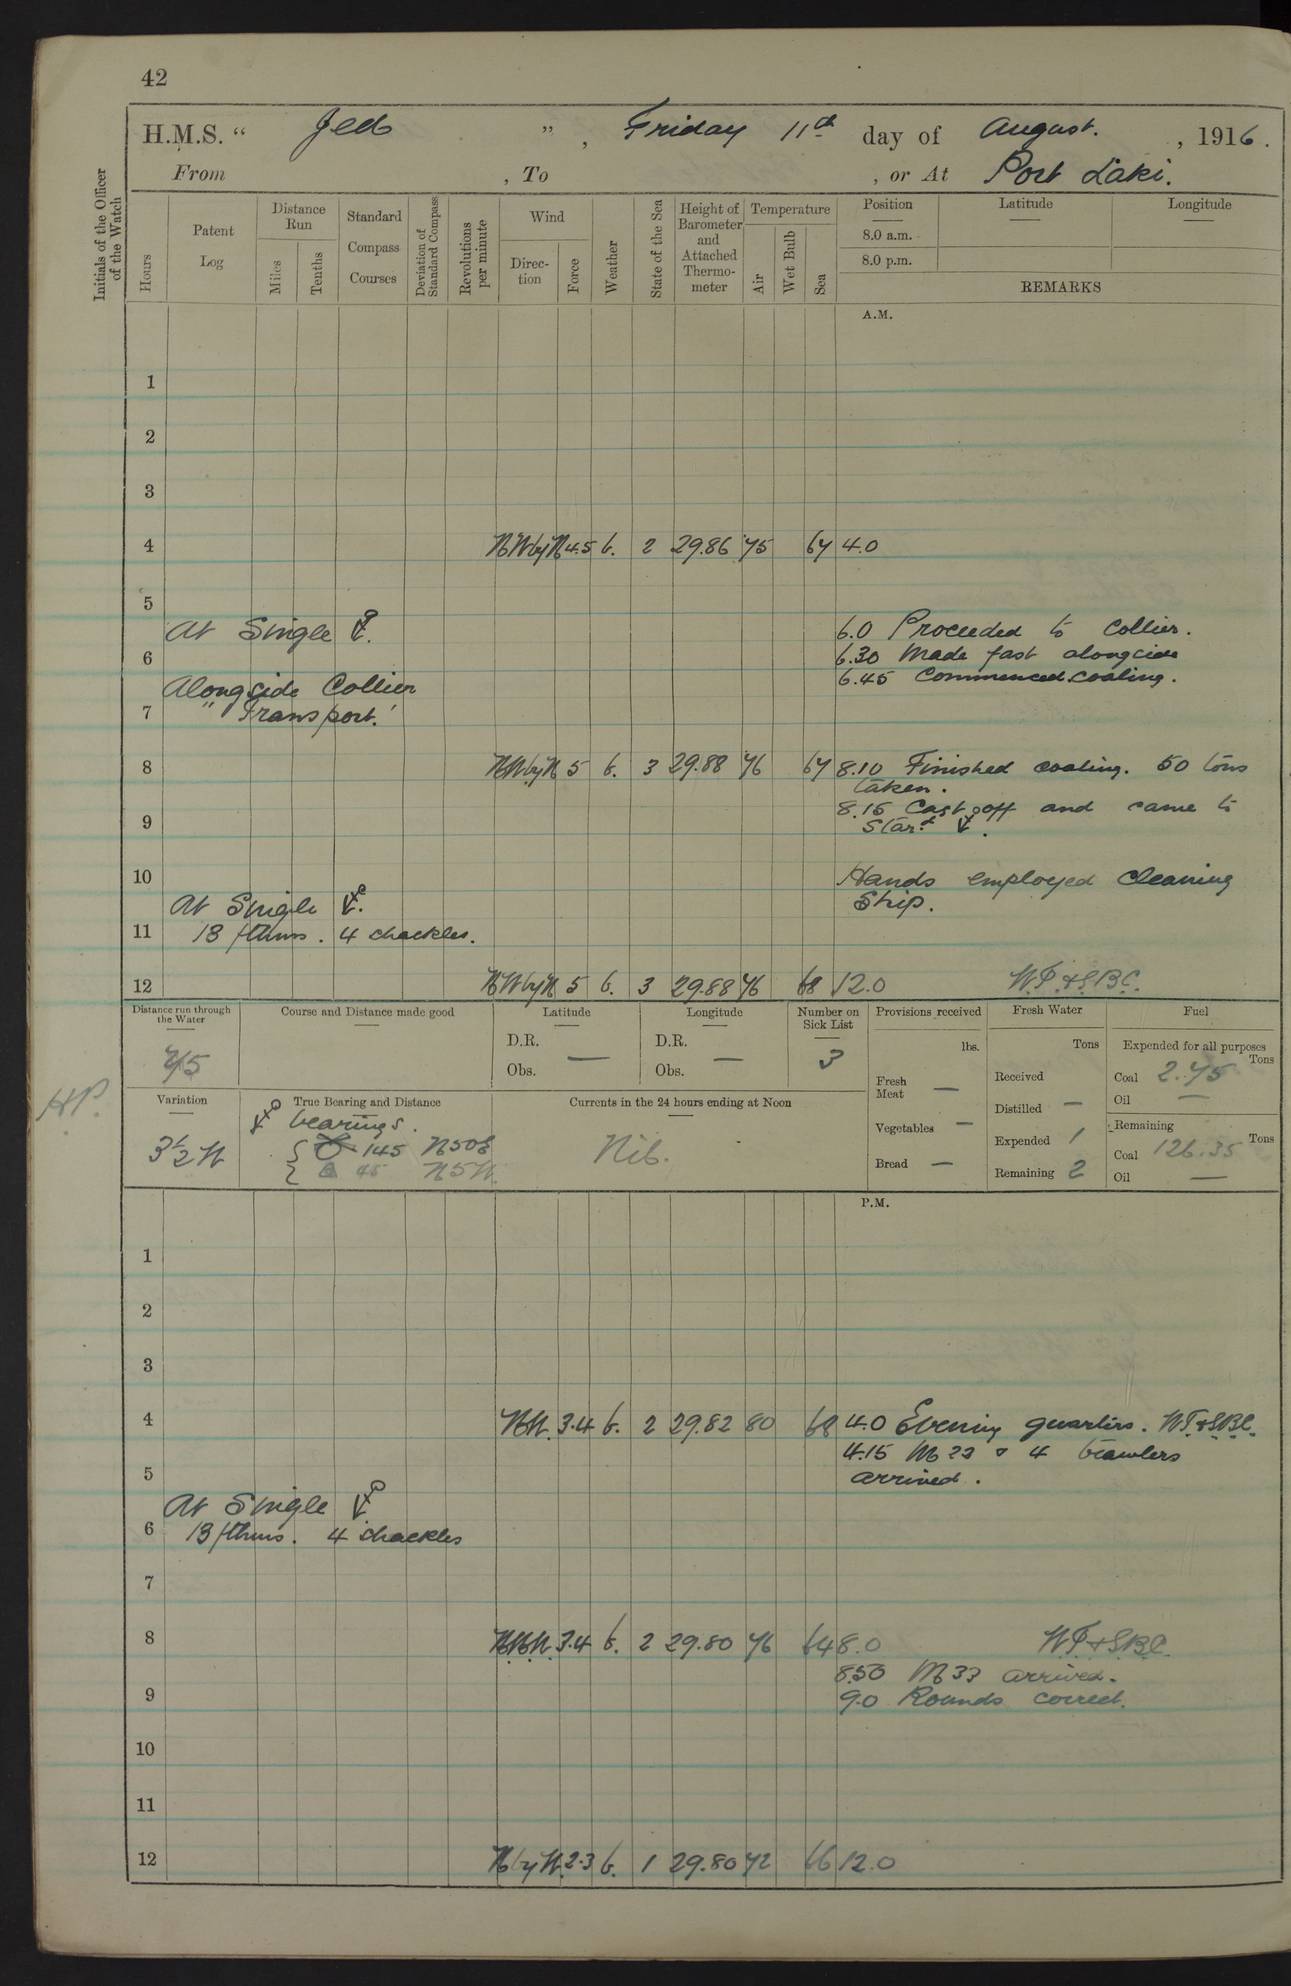 42
H.M.S. " Jed " , Friday 11th day of August. , 1916.
From , To , or At Port Laki.
Initials of the Officer of the Watch
Hours
Patent Log
Distance Run
Miles
Tenths
Standard Compass Courses
Deviation of Standard Compass
Revolutions per minute
Wind
Direction
Force
Weather
State of the Sea
Height of Barometer and Attached Thermometer
Temperature
Air
Wet Bulb
Sea
Position
8.0 a.m.
8.0 p.m.
Latitude
Longitude
REMARKS
A.M.
1
2
3
4 NW by N 4.5 b. 2 29.86 75 67 4.0
5
At Single 6.0 Proceeded to Collier.
6 6.30 Made fast alongside
Alongside Collier 6.45 Commenced coaling.
7 "Transport."
8 NW by N 5 b. 3 29.88 76 67 8.10 Finished coaling. 50 tons
taken.
9 8.15 Cast off and came to
Star.d
10 Hands employed Cleaning
At Single Ship.
11 13 fthms. 4 shackles.
12 NW by N 5 b. 3 29.88 76 68 12.0 W.T. & S.B.C.
Distance run through the Water
Course and Distance made good
Latitude
D.R.
Obs. —
Longitude
D.R.
Obs. —
Number on Sick List
3
Provisions received
lbs.
Fresh Meat —
Vegetables —
Bread —
Fresh Water
Tons
Received
Distilled —
Expended 1
Remaining 2
Fuel
Expended for all purposes
Tons
Coal 2.75
Oil —
Remaining
Tons
Coal 126.35
Oil —
H.P.
Variation
3½ W
True Bearing and Distance
bearings.
145 N50E
45 N5W.
Currents in the 24 hours ending at Noon
Nil.
P.M.
1
2
3
4 NW. 3.4 b. 2 29.82 80 68 4.0 Evening quarters. W.T. & S.B.C.
4.15 M 23 & 4 trawlers
5 arrived.
At Single
6 13 fthms. 4 shackles
7
8 NNW. 3.4 b. 2 29.80 76 64 8.0 W.T. & S.B.C.
8.50 M33 arrived.
9 9.0 Rounds correct.
10
11
12 N by W. 2.3 b. 1 29.80 72 66 12.0